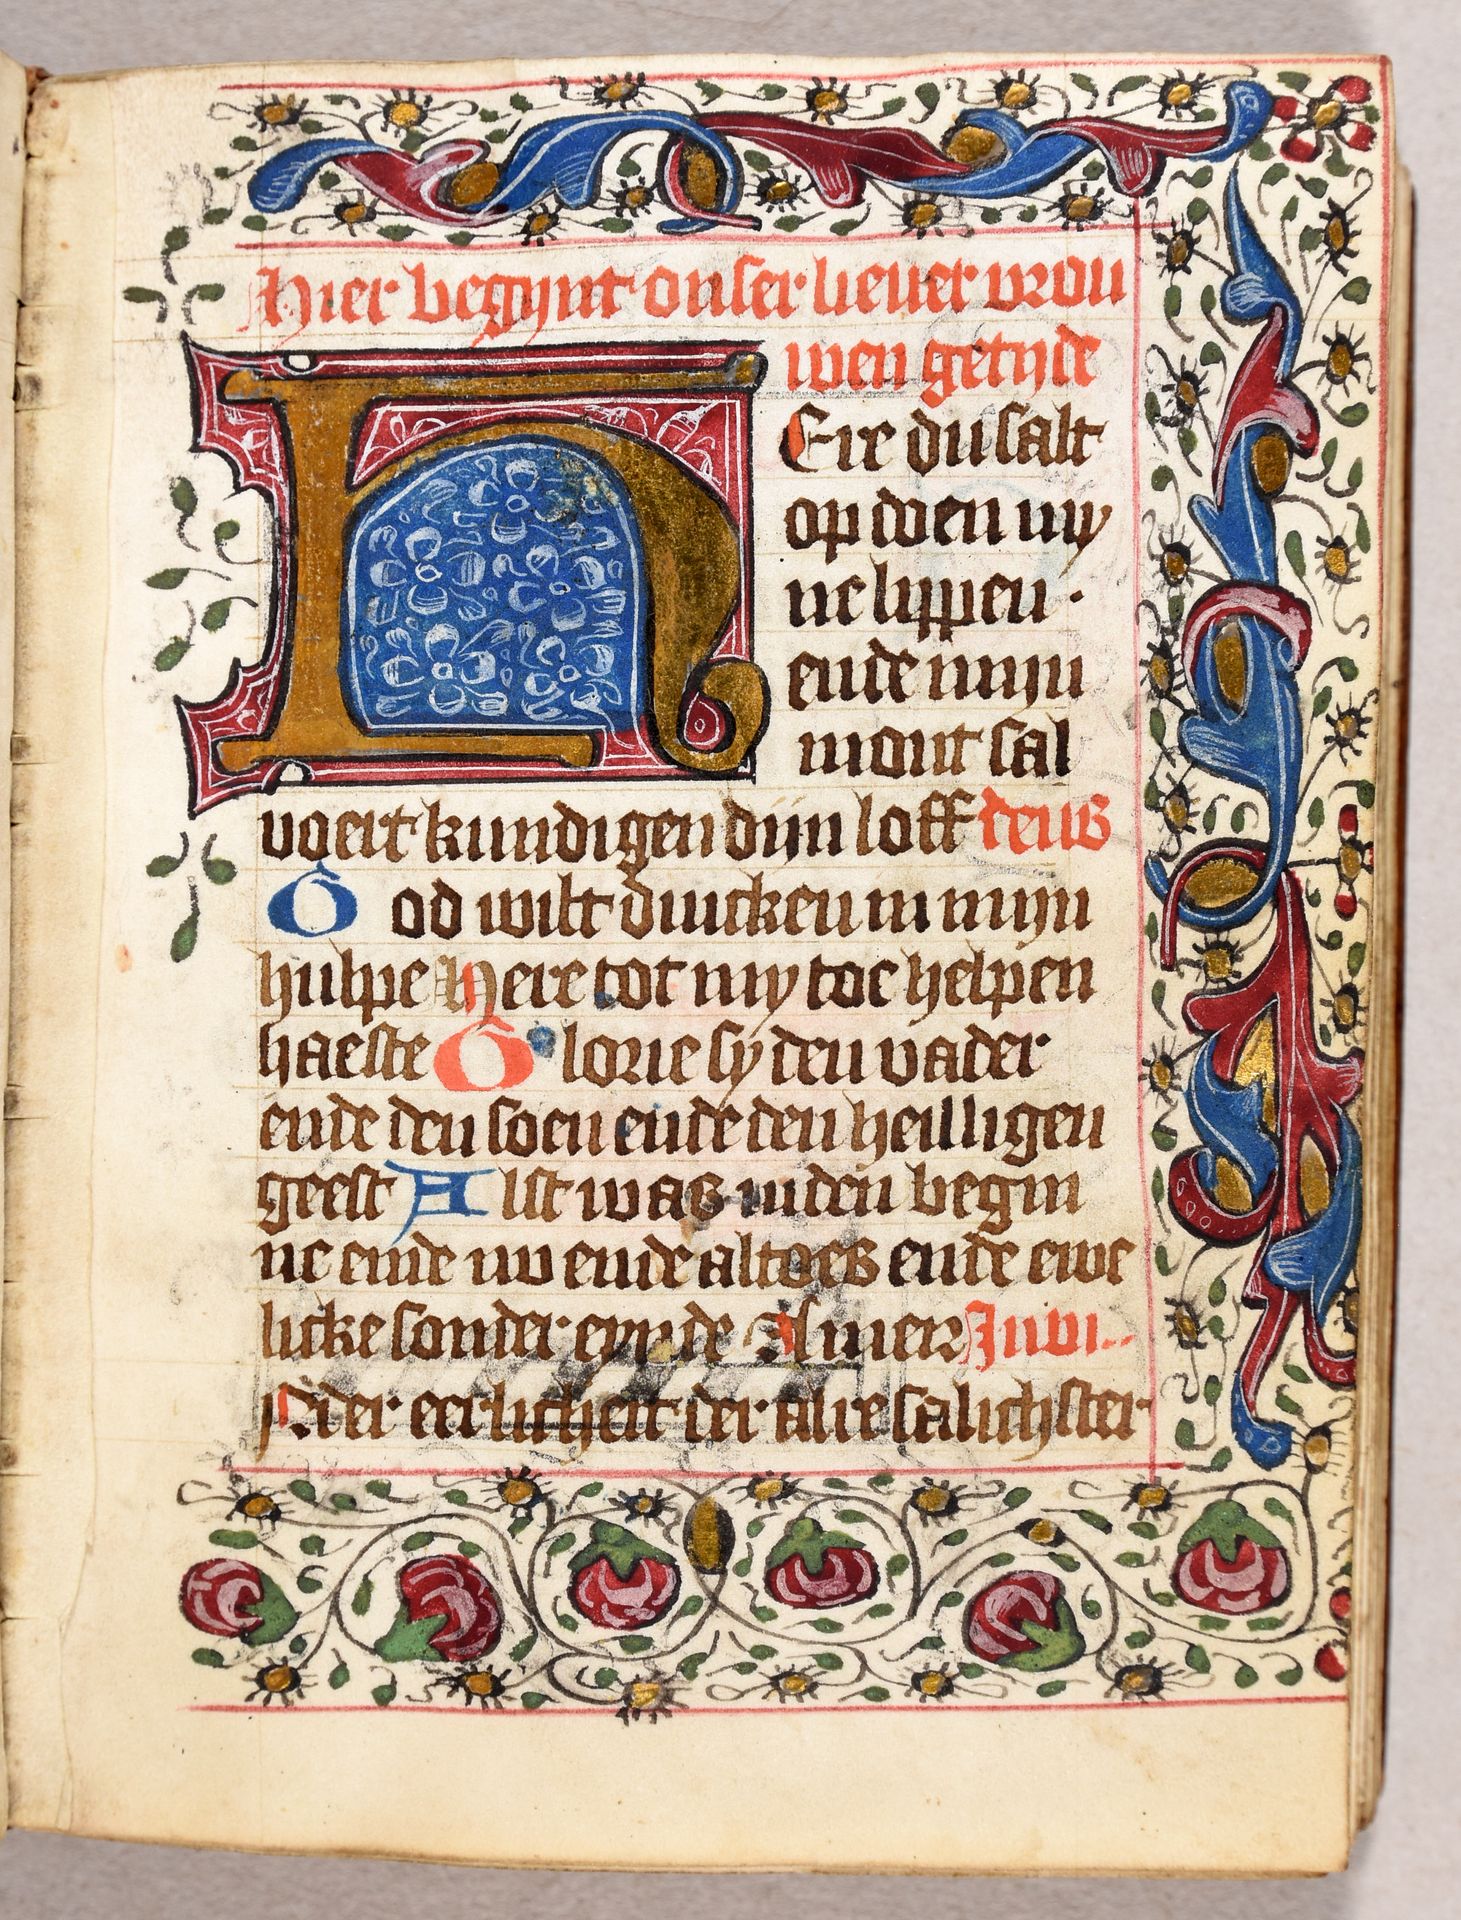 Hier begynt onser lieuer vrou
wen getyde
HEre du salt
op doen my
ne lippen ·
ende mijn
mont sal
voert kundigen dijn loff deus
God wilt duncken in mijn
hulpe Here tot my toe helpen
haeste Glorie sy den vader
ende den soen ende den heilligen
geest Alst was inden begin
ne ende nv ende altoes ende ewe
licke sonder eynde Amen Jnvi
der eerlicheit der alre salichster